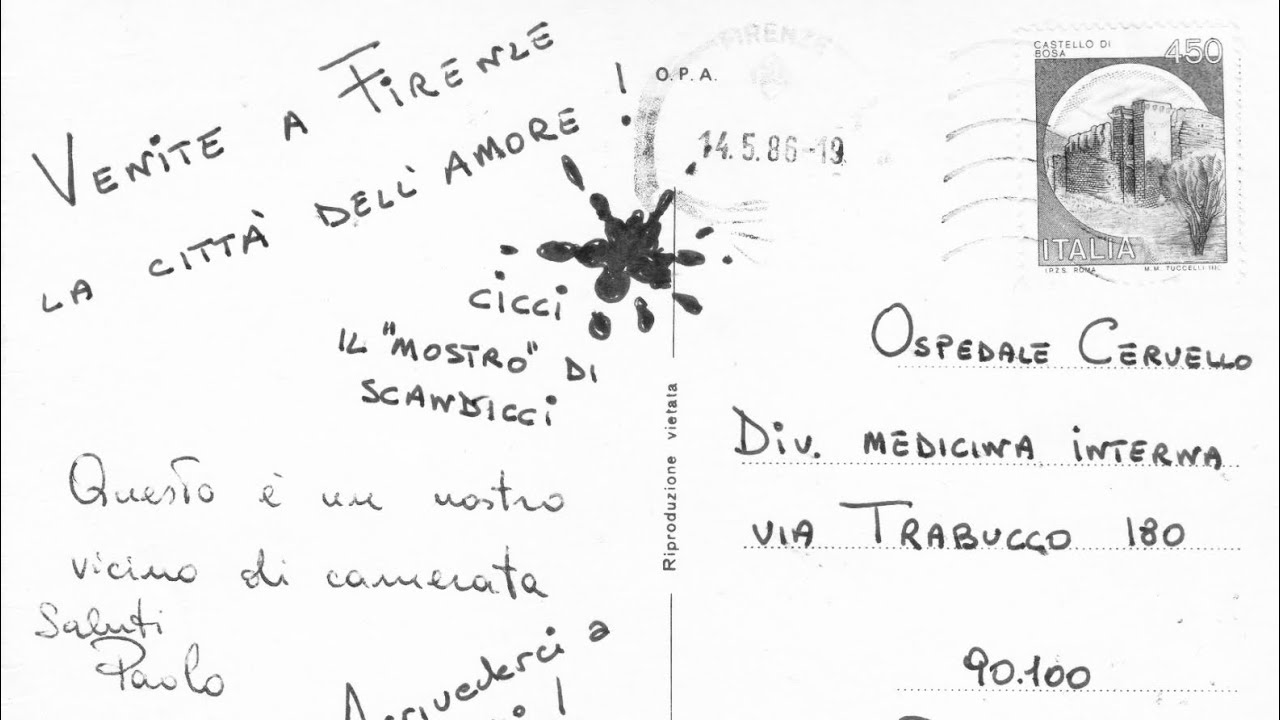 VENITE A FIRENZE
LA CITTÀ DELL'AMORE !
CICCI
IL "MOSTRO" DI
SCANDICCI
Questo è un nostro
vicino di camerata
Saluti
Paolo
Arrivederci a
O.P.A.
FIRENZE
14.5.86-19
CASTELLO DI
BOSA
450
ITALIA
I.P.Z.S. ROMA
M.M. TUCCELLI INC.
Riproduzione vietata
OSPEDALE CERVELLO
DIV. MEDICINA INTERNA
VIA TRABUCCO 180
90.100